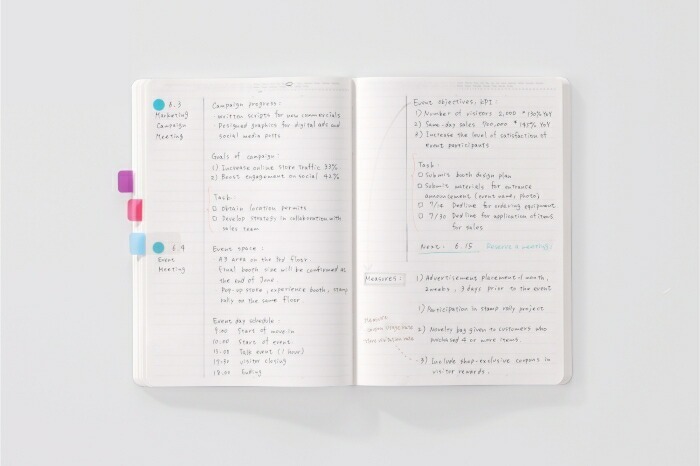 6.3
Marketing
Campaign
Meeting
Campaign progress:
· written scripts for new commercials
· Designed graphics for digital ads and
social media posts
Goals of campaign:
1) Increase online store traffic 33%
2) Boost engagement on social 42%
Task
□ Obtain location permits
□ Develop strategy in collaboration with
sales team
6.4
Event
Meeting
Event space:
· A3 area on the 3rd floor
· Final booth size will be confirmed at
the end of June
· Pop-up store, experience booth, stamp
rally on the same floor
Event day schedule:
9:00 Start of move-in
10:00 Start of event
15:00 Talk event (1 hour)
17:30 visitor closing
18:00 Ending
Event objectives, KPI:
1) Number of visitors 2,000 * 130% YoY
2) Same day sales
3) Increase the level of satisfaction of
event participants
Task:
□ Submit booth design plan
□ Submit materials for entrance
announcement (event name, photo)
□ 7/14 Dedline for ordering equipment
□ 7/30 Dedline for application of items
for sales
Next: 6.15 Reserve a meeting
Measures:
1) Advertisement placement 1 month,
2 weeks, 3 days prior to the event
1) Participation in stamp rally project
2) Novelty bag given to customers who
purchased 4 or more items.
3) Include shop-exclusive coupons in
visitor rewards.